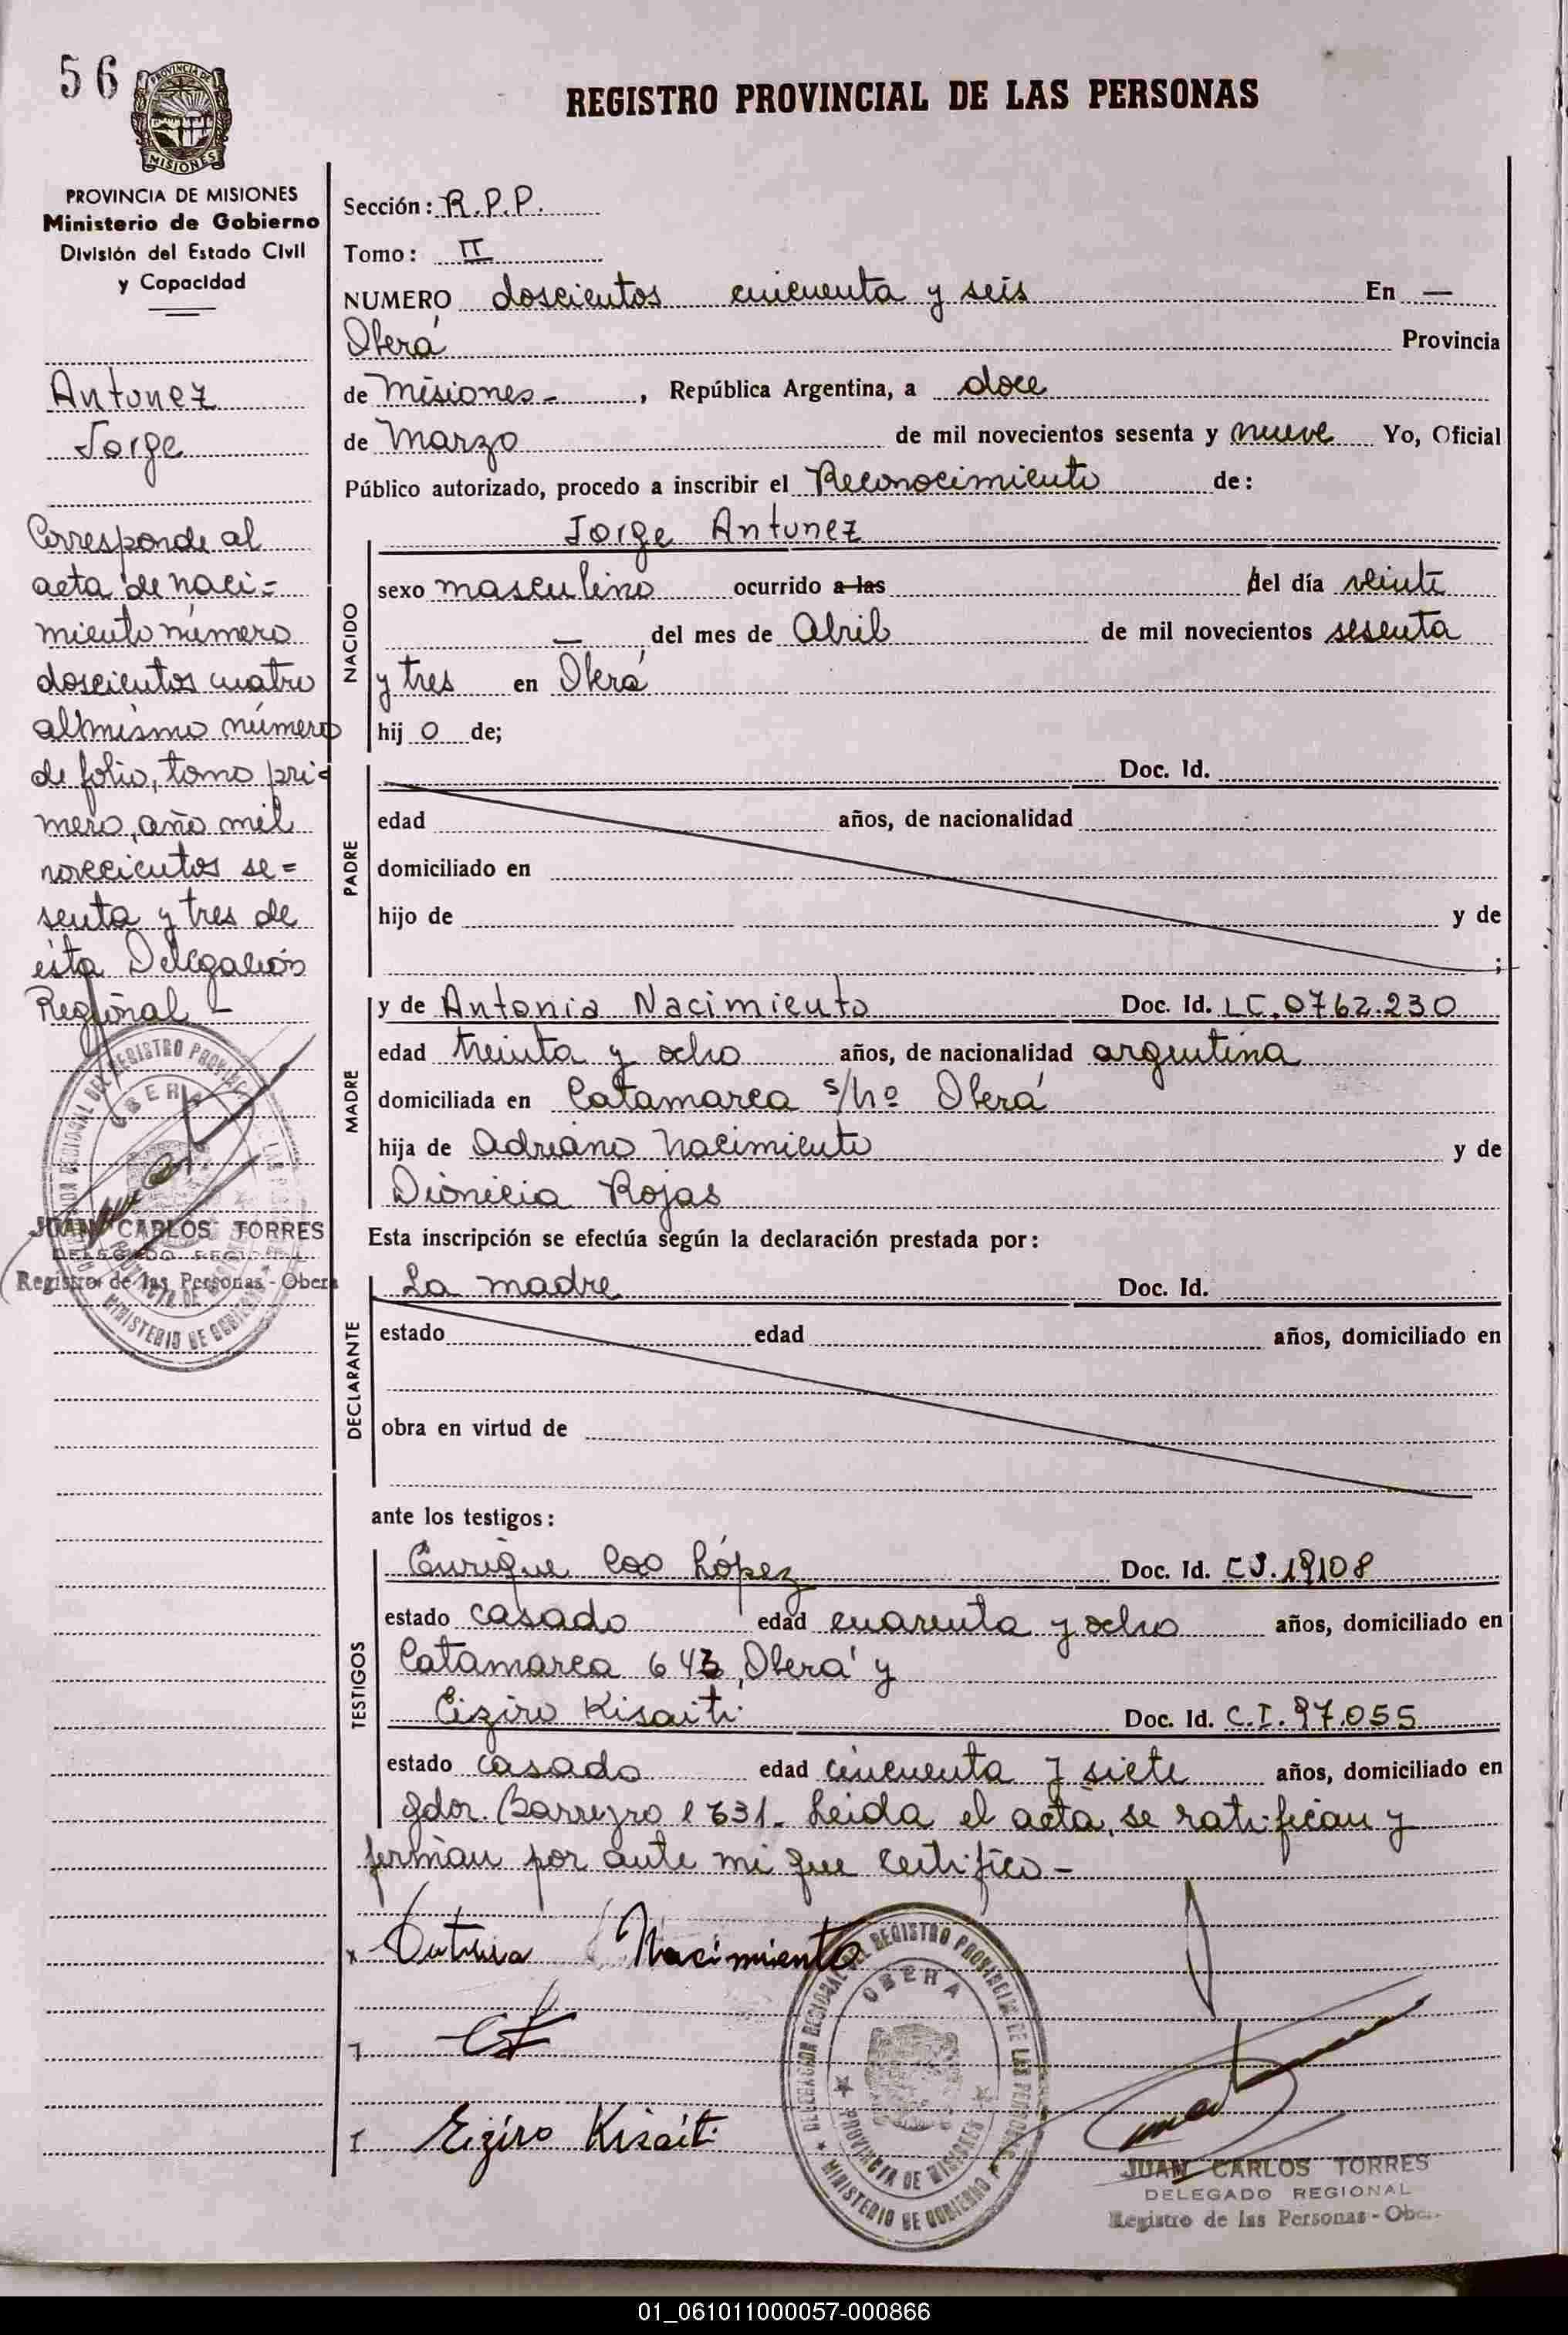 56
PROVINCIA DE
MISIONES
REGISTRO PROVINCIAL DE LAS PERSONAS
PROVINCIA DE MISIONES
Ministerio de Gobierno
División del Estado Civil
y Capacidad
Antunez
Jorge
Corresponde al
acta de naci=
miento número
doscientos cuatro
al mismo número
de folio, tomo pri=
mero, año mil
novecientos se=
senta y tres de
esta Delegación
Regional -
JUAN CARLOS TORRES
DELEGADO REGIONAL
Registro de las Personas - Oberá
Sección: R.P.P.
Tomo: II
NUMERO doscientos cincuenta y seis En —
Oberá Provincia
de Misiones - , República Argentina, a doce
de Marzo de mil novecientos sesenta y nueve Yo, Oficial
Público autorizado, procedo a inscribir el Reconocimiento de:
Jorge Antunez
NACIDO
sexo masculino ocurrido a las del día veinte
— del mes de Abril de mil novecientos sesenta
y tres en Oberá
hij o de;
PADRE
Doc. Id.
edad años, de nacionalidad
domiciliado en
hijo de y de
;
MADRE
y de Antonia Nacimiento Doc. Id. LC.0762.230
edad treinta y ocho años, de nacionalidad argentina
domiciliada en Catamarca s/nº Oberá
hija de Adriano Nacimiento y de
Dionicia Rojas
Esta inscripción se efectúa según la declaración prestada por:
DECLARANTE
La madre Doc. Id.
estado edad años, domiciliado en
obra en virtud de
ante los testigos:
TESTIGOS
Enrique Cao López Doc. Id. C.I.19108
estado casado edad cuarenta y ocho años, domiciliado en
Catamarca 643, Oberá y
Eiziro Kisaiti Doc. Id. C.I.97.055
estado casado edad cincuenta y siete años, domiciliado en
gdor. Barreyro 1631. Leida el acta, se ratifican y
firman por ante mi que certifico -
x Antonia Nacimiento
Eiziro Kisaiti
DELEGACION REGIONAL DEL REGISTRO PROVINCIAL DE LAS PERSONAS
OBERA
PROVINCIA DE MISIONES
MINISTERIO DE GOBIERNO
JUAN CARLOS TORRES
DELEGADO REGIONAL
Registro de las Personas - Obe
01_061011000057-000866